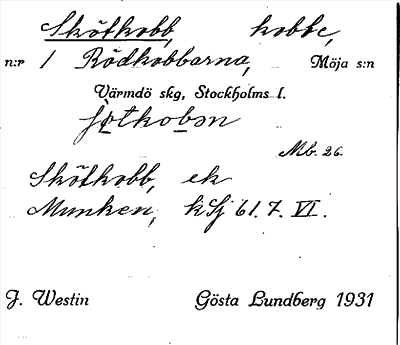 Skötkobb, kobbe,
n:r 1 Rödkobbarna, Möja s:n
Värmdö skg, Stockholms l.
Mb. 26.
Skötkobb, ek
Munken, kSj 61. 7. VI.
J. Westin Gösta Lundberg 1931